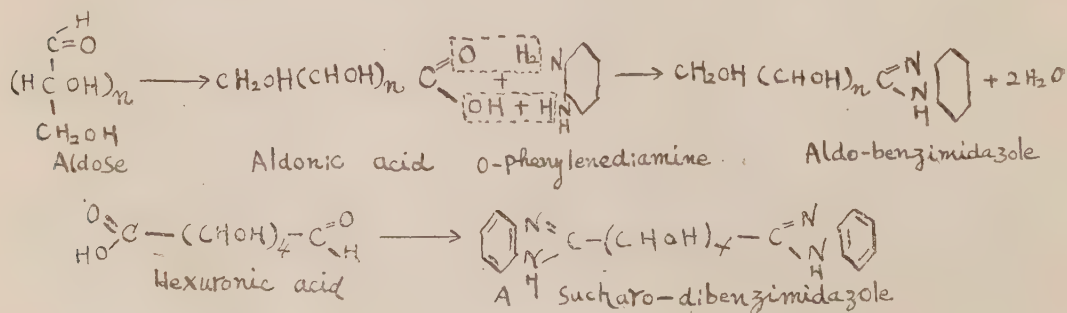 H
C=O
(H C OH)n ⟶ CH2OH(CHOH)n C O H2 N ⟶ CH2OH (CHOH)n C N N H + 2H2O
+
OH + H N H
CH2OH
Aldose Aldonic acid o-phenylenediamine. Aldo-benzimidazole
O HO C-(CHOH)4-C=O H ⟶ N= N H C-(CHOH)4-C=N N H
Hexuronic acid A Sucharo-dibenzimidazole